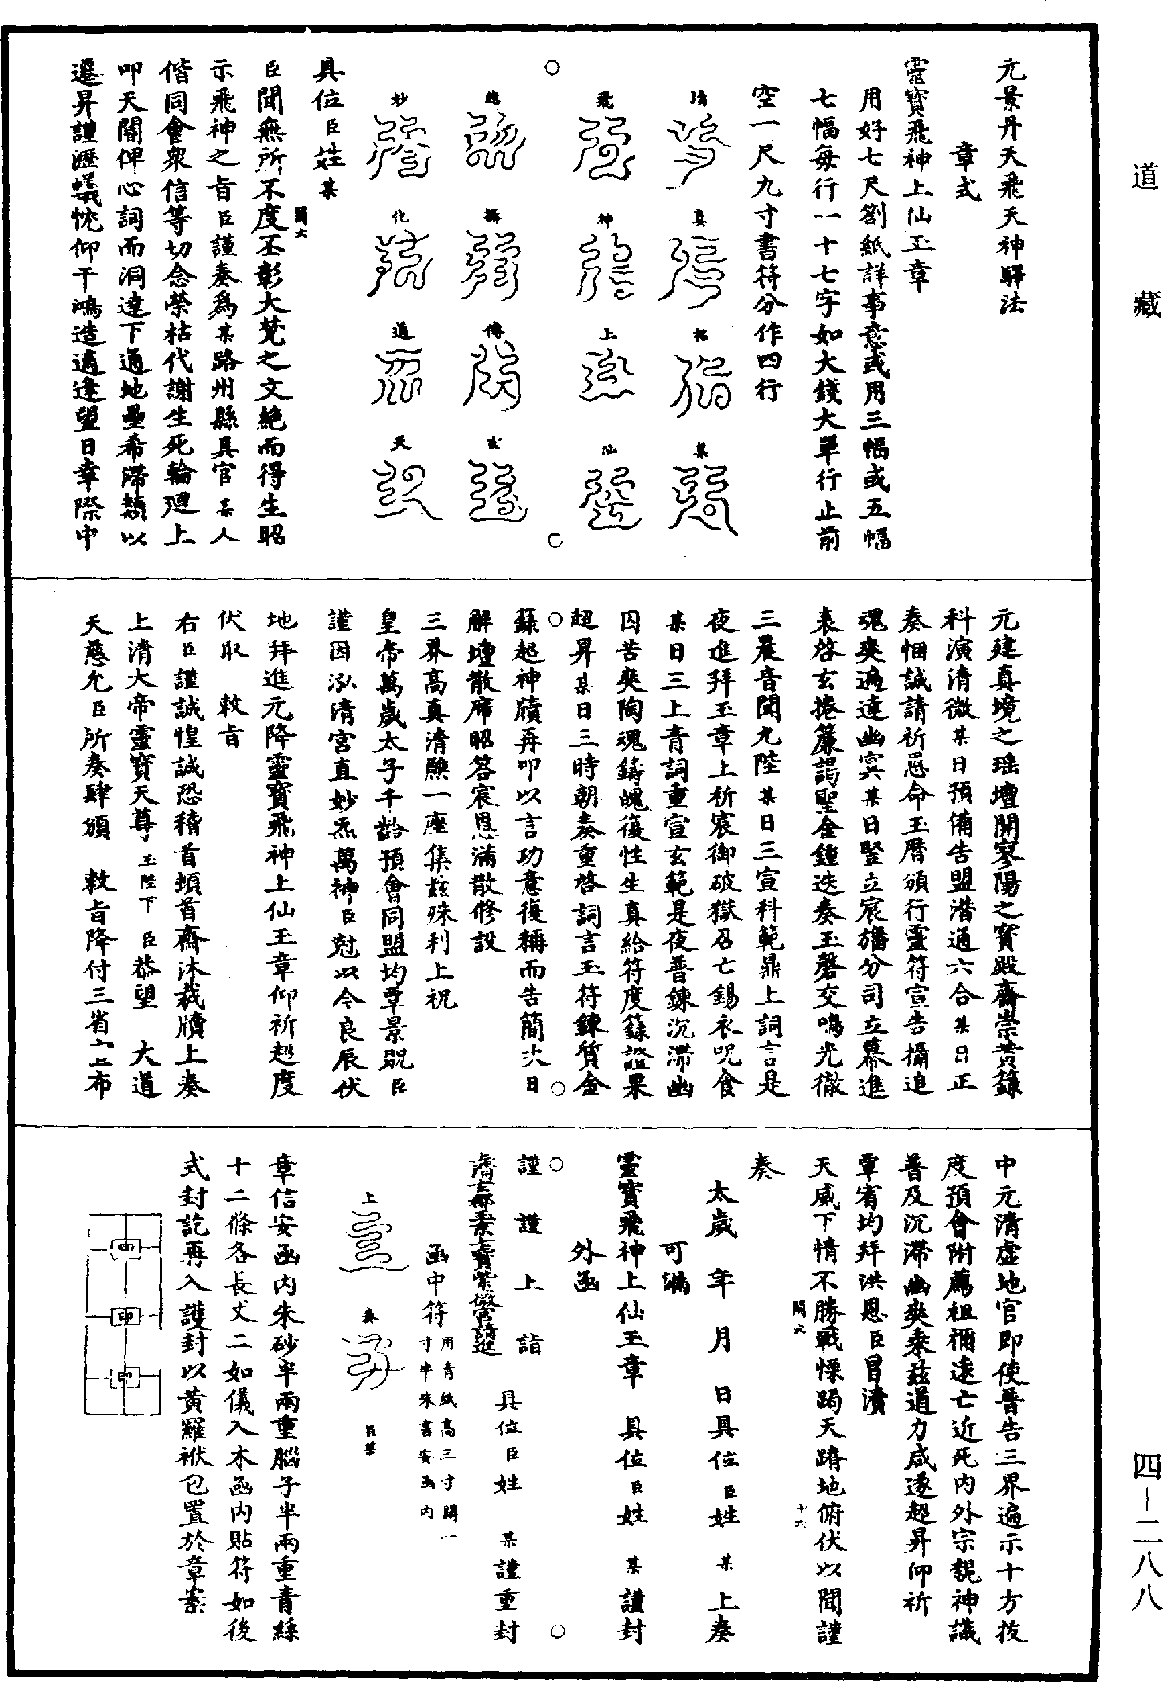 道藏
元景丹天飛天神驛法
章式
靈寶飛神上仙玉章
用好七尺劄紙詳事意或用三幅或五幅
七幅每行一十七字如大錢大單行止前
空一尺九寸書符分作四行
真
飛
神
上
仙
傳
玄
妙
化
道
天
具位臣姓某
臣聞無所不度丕彰大梵之文絶而得生昭
示飛神之旨臣謹奏爲某路州縣具官某人
偕同會衆信等切念榮枯代謝生死輪廻上
叩天關俾心詞而洞達下通地壘希滯纇以
遷昇謹瀝蟻忱仰干鴻造適逢望日幸際中
元建真境之瑶壇開寥陽之寳殿齋崇黃籙
科演清微某日預備告盟潜通六合某日正
奏悃誠請祈恩命玉曆頒行靈符宣告攝追
魂爽遍達幽冥某日竪立宸旛分司立幕進
表啓玄捲簾謁聖金鐘迭奏玉磬交鳴光徹
三晨音聞九陛某日三宣科範鼎上詞言是
夜進拜玉章上祈宸御破獄召亡錫衣呪食
某日三上青詞重宣玄範是夜普鍊沉滯幽
囚苦爽陶魂鑄魄復性生真給符度籙證果
超昇某日三時朝奏重啓詞言玉符鍊質金
籙起神牘再叩以言功意復稱而告簡次日
解壇散席昭答宸恩滿散修設
三界高真清醮一座集兹殊利上祝
皇帝萬歲太子千齡預會同盟均覃景貺臣
謹因泓清宮直妙炁萬神臣尅以今良辰伏
地拜進元降靈寳飛神上仙玉章仰祈超度
伏取　敕旨
右臣謹誠惶誠恐稽首頓首齋沐裁牘上奏
上清大帝靈寶天尊玉陛下　臣恭望　大道
天慈允臣所奏肆頒　敕旨降付三省上布
中元清虛地官即使普告三界遍示十方拔
度預會附薦祖禰遠亡近死内外宗親神識
普及沉滯幽爽乘兹道力咸遂超昇仰祈
覃宥均拜洪恩臣冒瀆
天威下情不勝戰慄跼天蹐地俯伏以聞謹
奏
太歲　年　月　日具位臣姓　某　上奏
可漏
靈寶飛神上仙玉章　具位臣姓　某　謹封
外函
謹謹上詣
具位臣姓　某　謹重封
函中符用青紙高三寸闊一寸半朱書安函内
上
奏
章信安函内朱砂半兩重腦子半兩重青絲
十二條各長丈二如儀入木函内貼符如後
式封訖再入護封以黃羅袱包置於章案
四-二八八